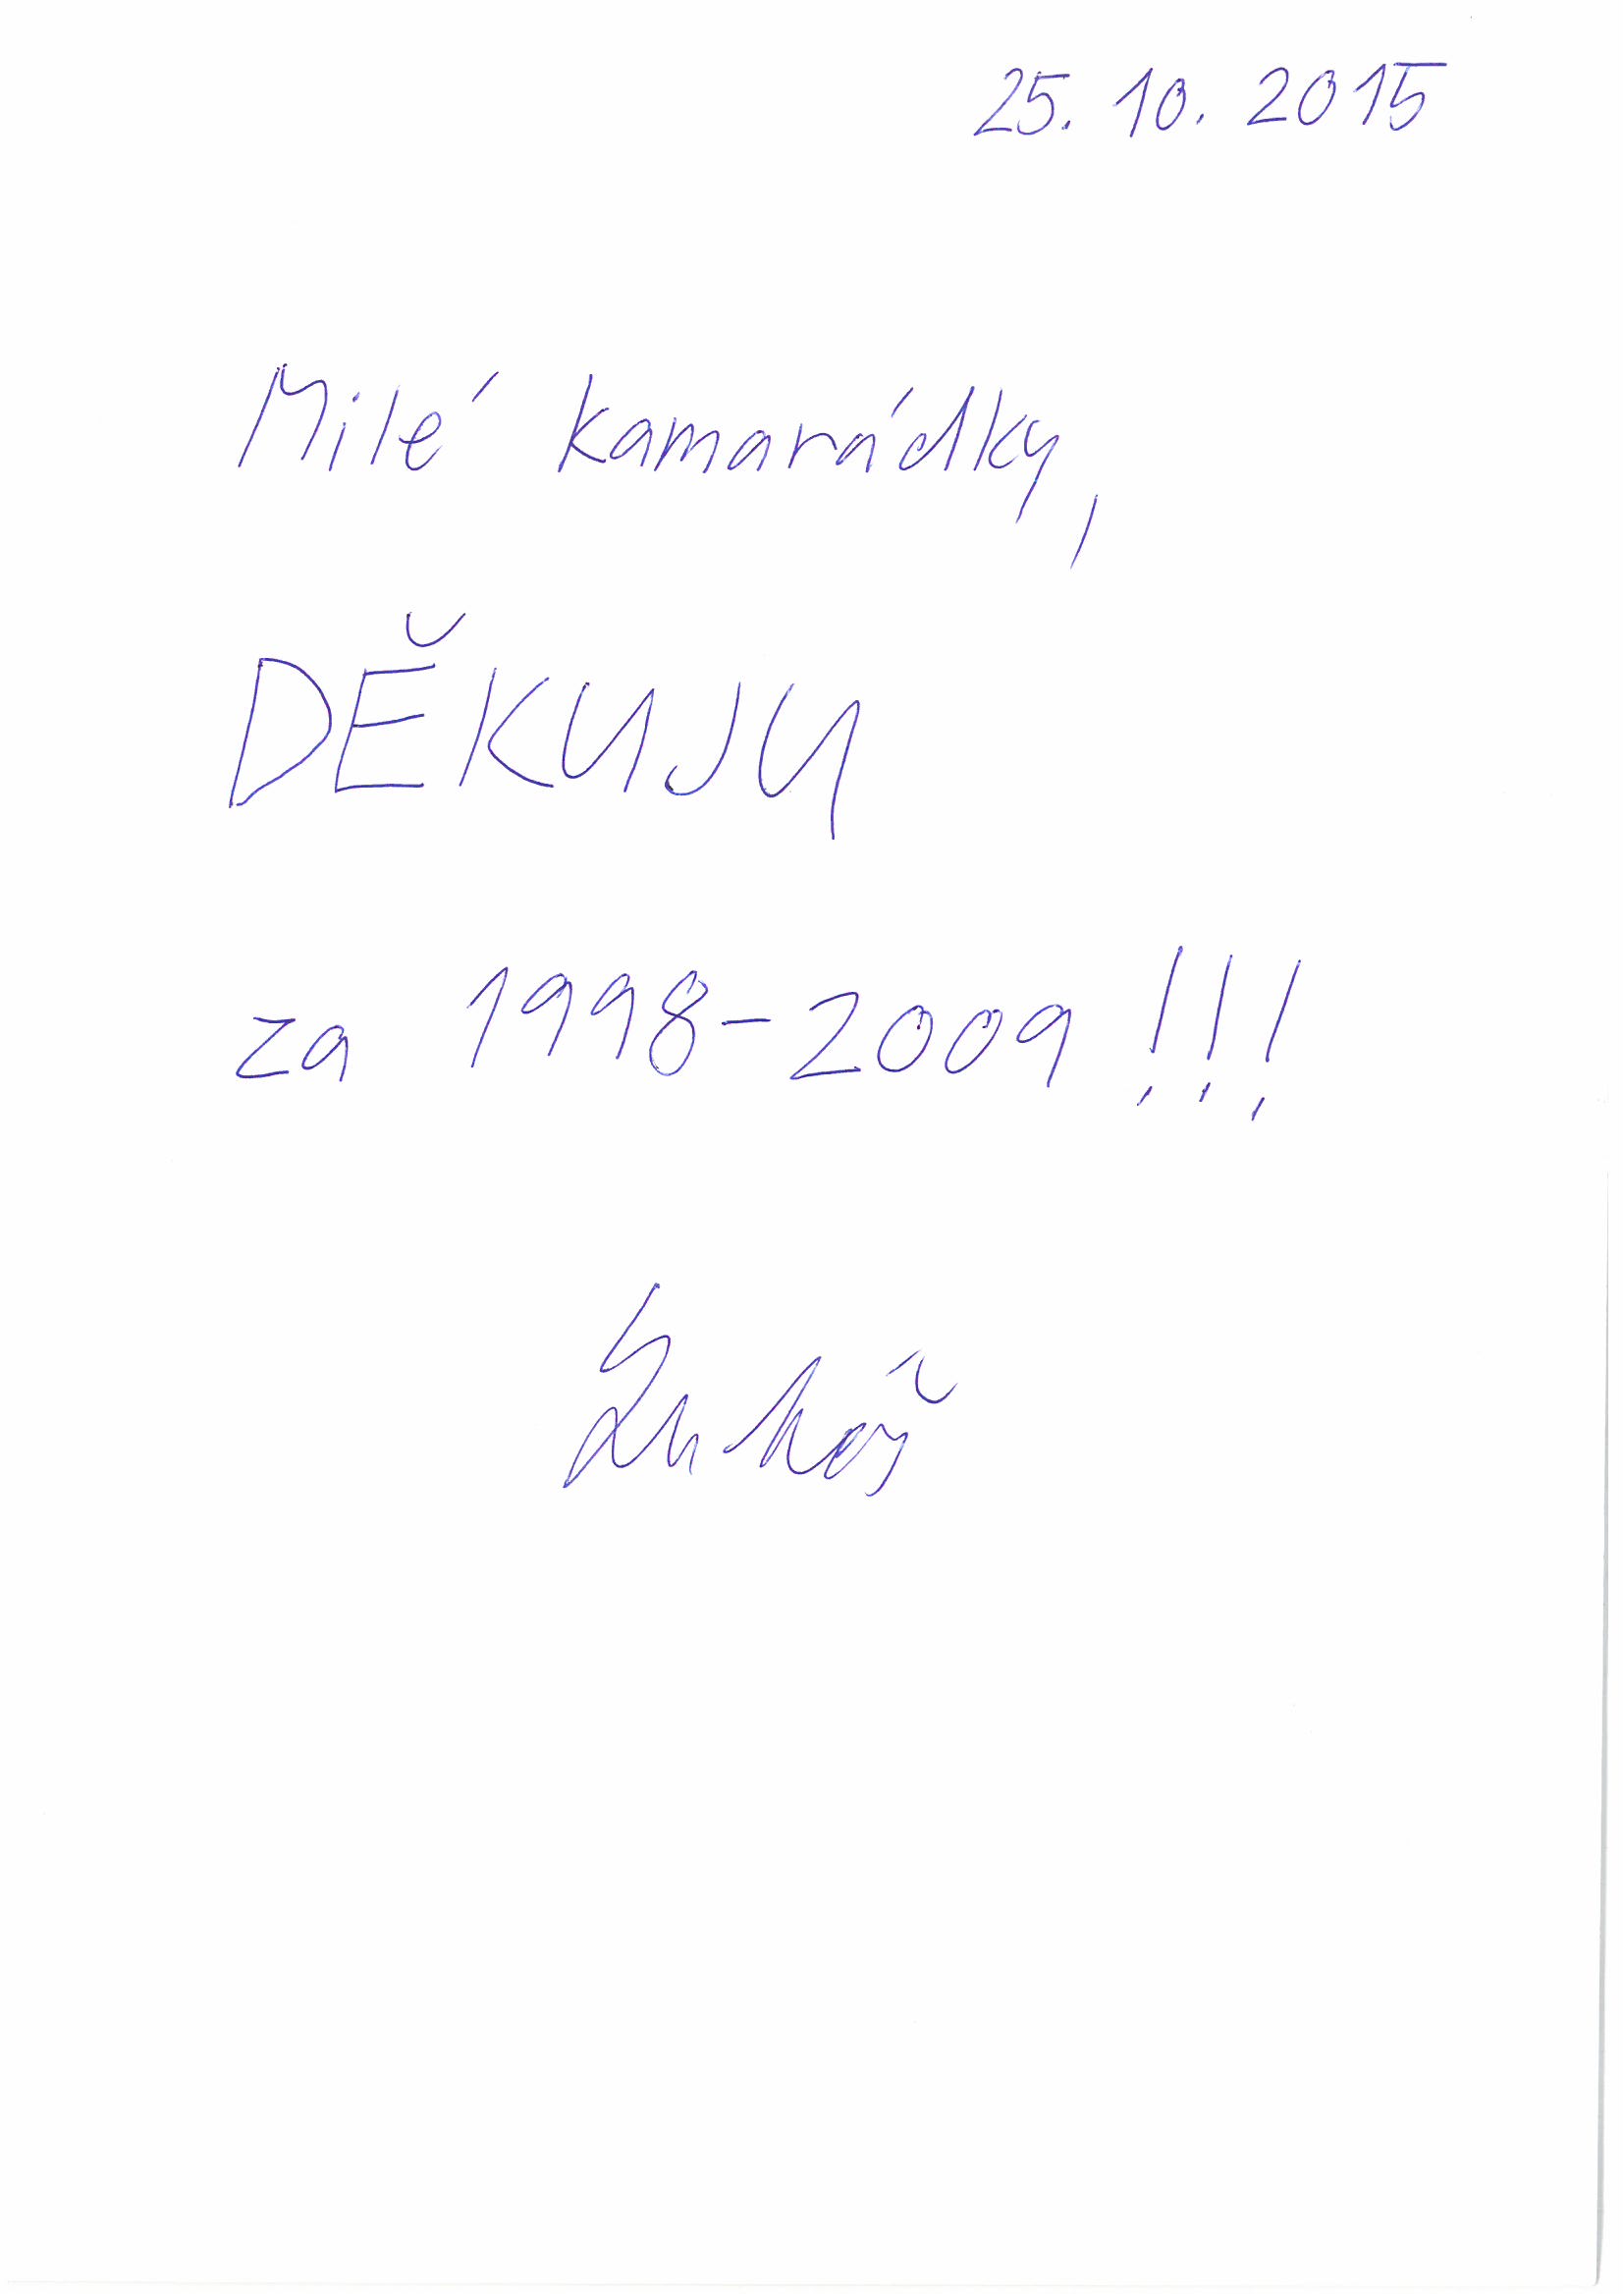 25. 10. 2015
Milé kamarádky,
DĚKUJU
za 1998-2009!!!